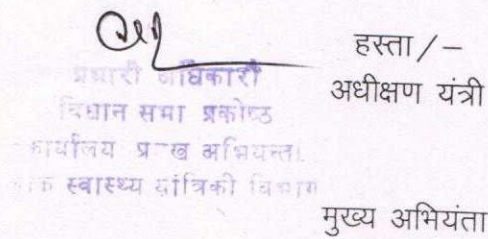 हस्ता/–
अधीक्षण यंत्री
प्रभारी अधिकारी
विधान सभा प्रकोष्ठ
कार्यालय प्रमुख अभियन्ता
स्वास्थ्य यांत्रिकी विभाग
मुख्य अभियंता